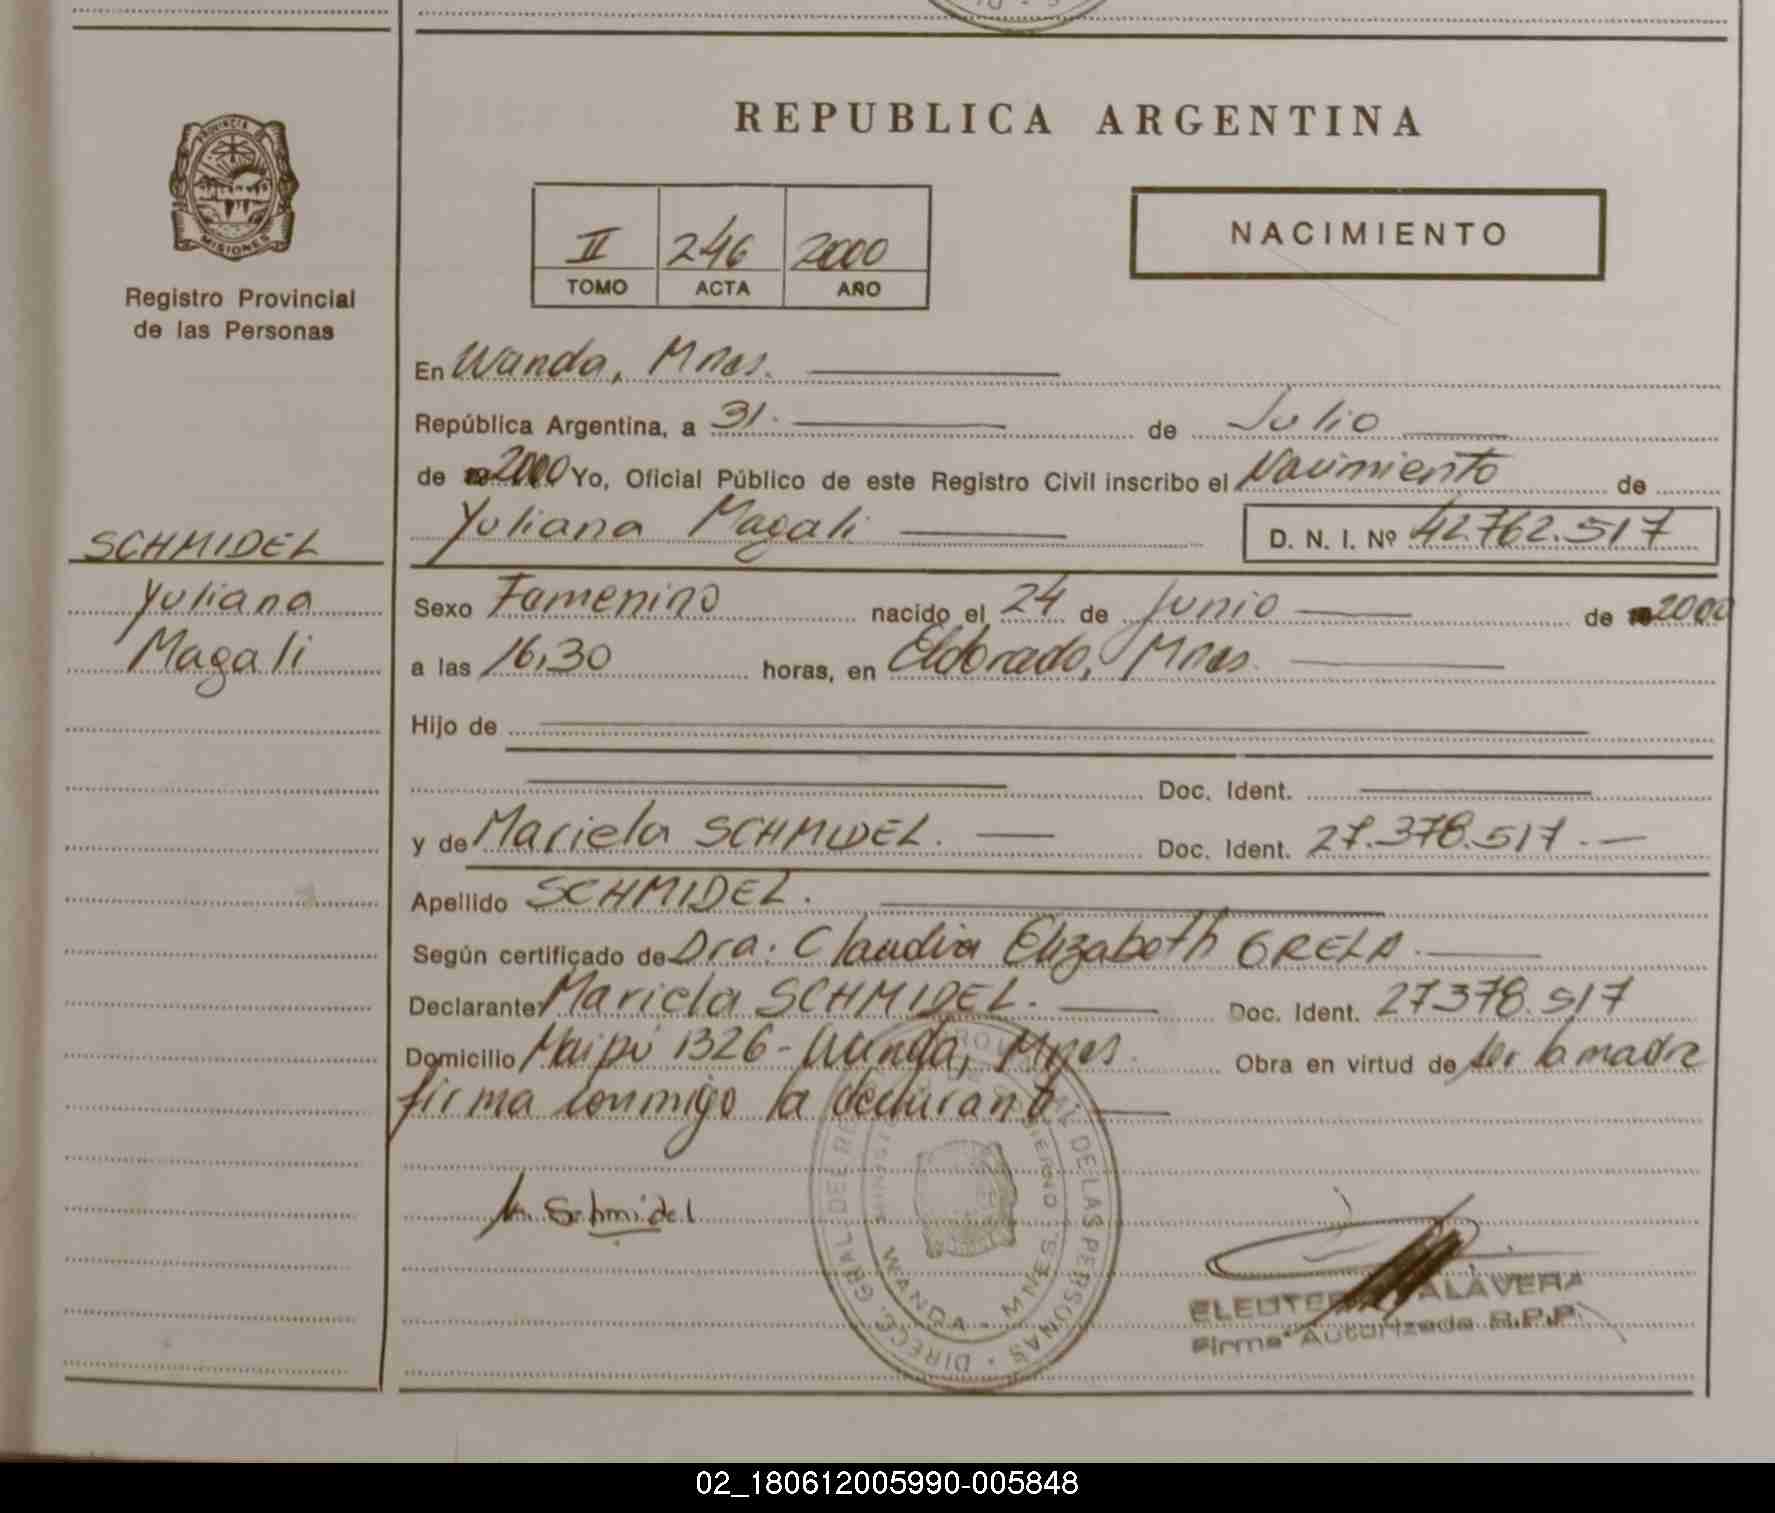 REPUBLICA ARGENTINA
PROVINCIA
MISIONES
Registro Provincial
de las Personas
II 246 2000
TOMO ACTA AÑO
NACIMIENTO
En Wanda, Mnes.
República Argentina, a 31. de Julio
de 2000 Yo, Oficial Público de este Registro Civil inscribo el Nacimiento de
Yuliana Magali D. N. I. Nº 42762.517
SCHMIDEL
Yuliana
Magali
Sexo Femenino nacido el 24 de Junio de 2000
a las 16,30 horas, en Eldorado, Mnes.
Hijo de
Doc. Ident.
y de Mariela SCHMIDEL. Doc. Ident. 27.378.517.
Apellido SCHMIDEL.
Según certificado de Dra. Claudia Elizabeth GRELA
Declarante Mariela SCHMIDEL. Doc. Ident. 27378.517
Domicilio Maipú 1326 - Wanda, Mnes. Obra en virtud de ser la madre
firma conmigo la declarant.
M. Schmidel
DIRECC. GRAL. DEL DE LAS PERSONAS
WANDA - MNES.
ALAVERA
Firma Autorizada R.P.P.
02_180612005990-005848